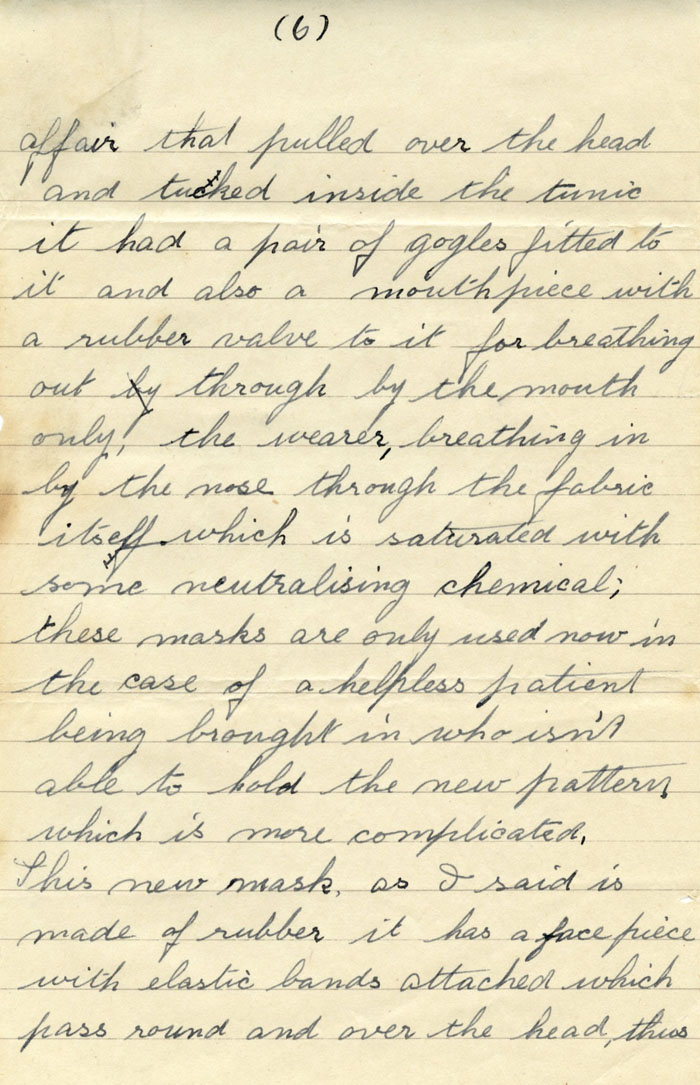 (6)
affair that pulled over the head
and tucked inside the tunic
it had a pair of gogles fitted to
it and also a mouthpiece with
a rubber valve to it for breathing
out by through by the mouth
only, the wearer, breathing in
by the nose through the fabric
itself which is saturated with
some neutralising chemical;
these masks are only used now in
the case of a helpless patient
being brought in who isn't
able to hold the new pattern
which is more complicated.
This new mask, as I said is
made of rubber it has a face piece
with elastic bands attached which
pass round and over the head, thus